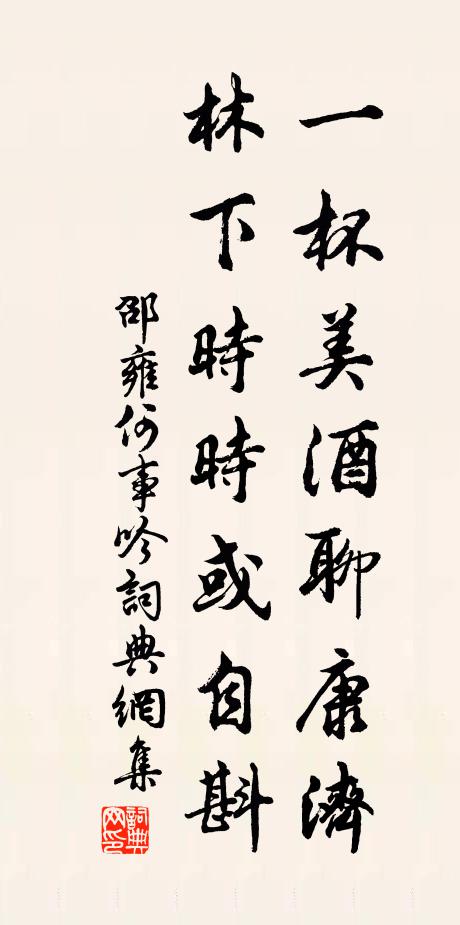 一杯美酒聊康濟
林下時時或自斟
邵雍何事吟詞典網集
詞典網印